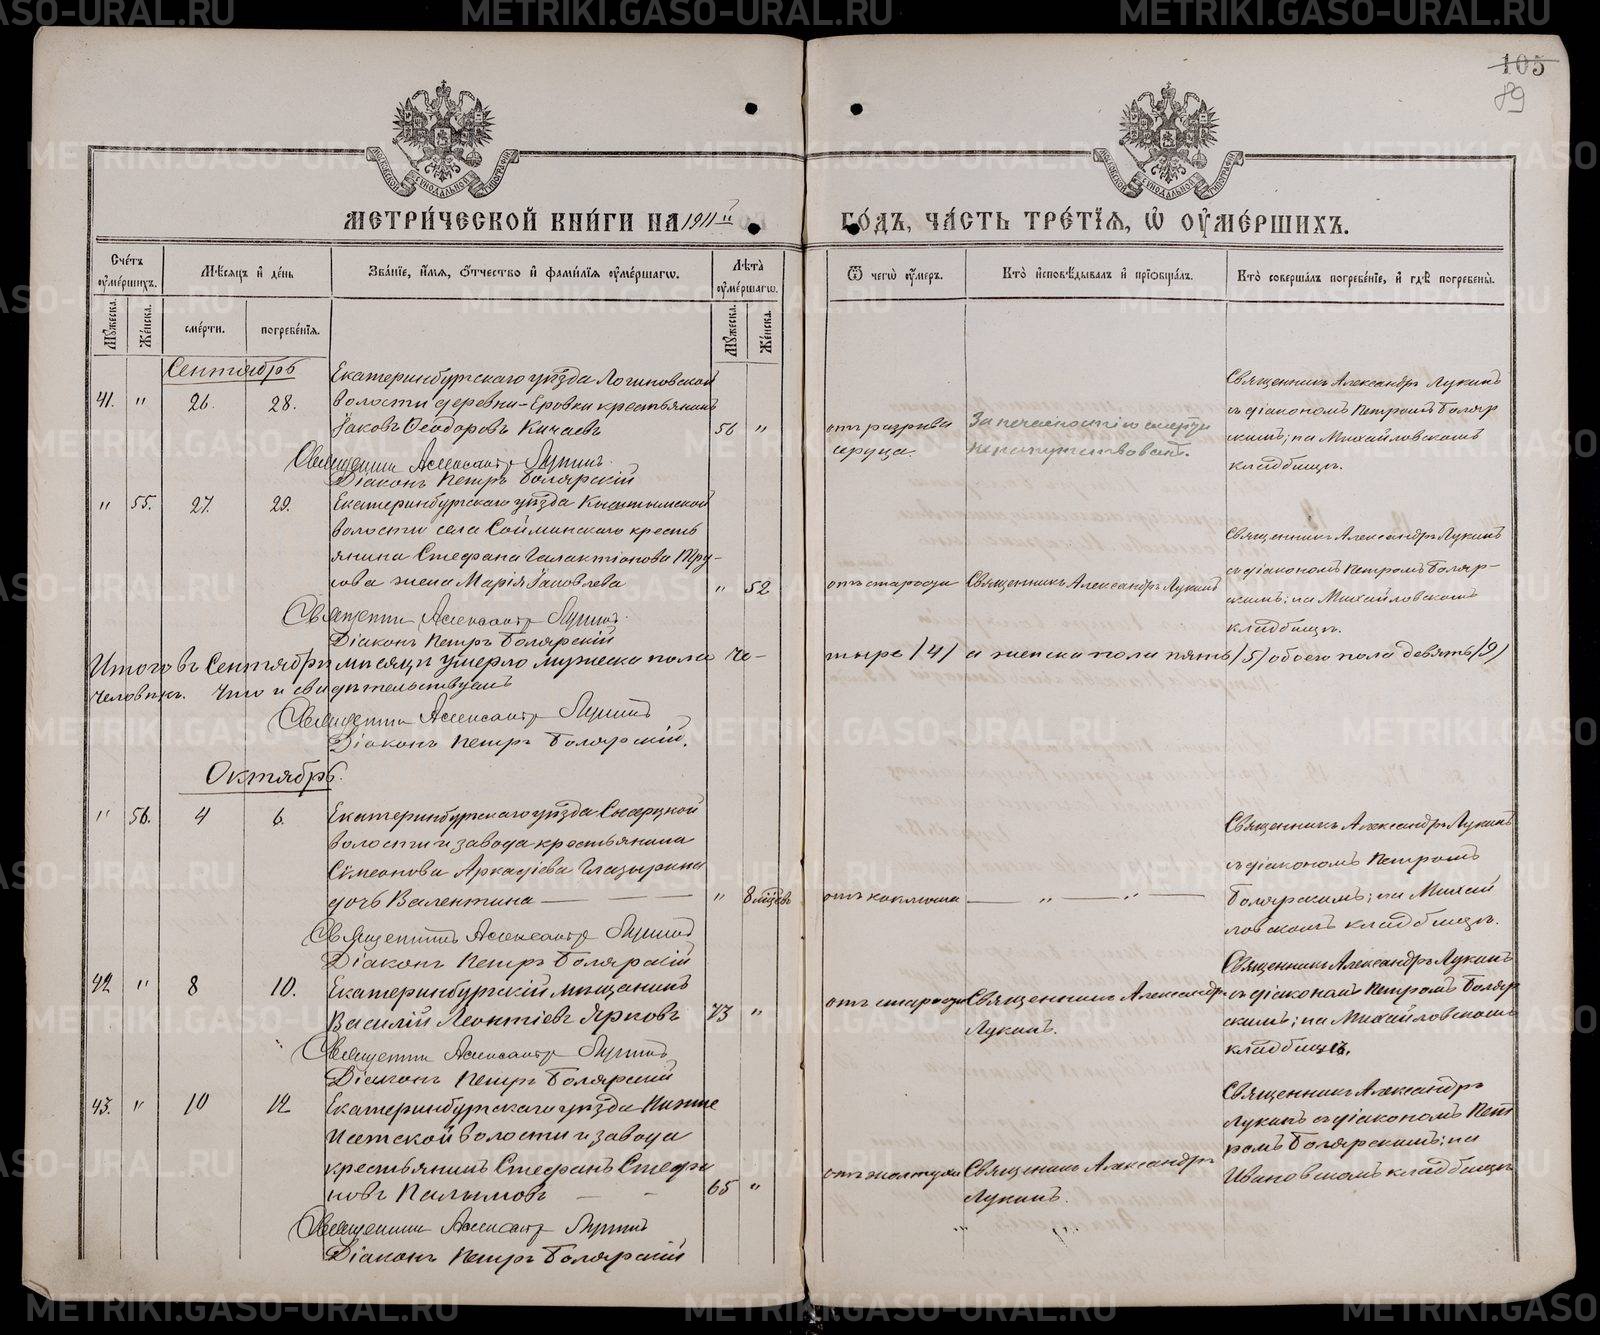 105
89
МЕТРИ́ЧЕСКОЙ КНИ́ГИ НА 1911й ГО́ДЪ, ЧА́СТЬ ТРЕ́ТЇѦ, Ѡ ОУМЕ́РШИХЪ.
Сче́тъ оуме́ршихъ.
Мѣ́сѧцъ и де́нь
Зва́нїе, и́мѧ, о́тчество и фами́лїѧ оуме́ршагѡ.
Лѣ́та оуме́ршагѡ.
Ѿ чегѡ̀ оу́меръ.
Кто̀ исповѣ́дывалъ и прїобща́лъ.
Кто̀ соверша́лъ погребе́нїе, и гдѣ̀ погребены̀.
Му́жеска.
Же́нска.
сме́рти.
погребе́нїѧ.
Му́жеска.
Же́нска.
Сентябрь
41. " 26. 28.
Екатеринбургскаго уѣзда Логиновской
волости деревни Еровки крестьянинъ
Іаковъ Ѳеодоровъ Кичаевъ
56 "
отъ разрыва
сердца.
За нечаянностію смерти
не напутствованъ.
Священникъ Александръ Лукинъ
съ діакономъ Петромъ Боляр
скимъ; на Михайловскомъ
кладбищѣ.
Священникъ Александръ Лукинъ.
Діаконъ Петръ Болярскій
" 55. 27. 29.
Екатеринбургскаго уѣзда Кыштымской
волости села Сойминскаго кресть
янина Стефана Галактіонова Тру-
сова жена Марія Іаковлева
" 52
отъ старости
Священникъ Александръ Лукинъ
Священникъ Александръ Лукинъ
съ діакономъ Петромъ Боляр-
скимъ; на Михайловскомъ
кладбищѣ.
Священникъ Александръ Лукинъ.
Діаконъ Петръ Болярскій
Итого въ Сентябрѣ мѣсяцѣ умерло мужеска пола че-тыре /4/ а женска пола пять /5/ обоего пола девять /9/
человѣкъ. Что и свидѣтельствуемъ
Священникъ Александръ Лукинъ
Діаконъ Петръ Болярскій.
Октябрь.
" 56. 4 6.
Екатеринбургскаго уѣзда Сысертской
волости и завода крестьянина
Сѵмеонова Аркадіева Глазырина
дочь Валентина
" 8 мѣсяцевъ
отъ коклюша
"
Священникъ Александръ Лукинъ
съ діакономъ Петромъ
Болярскимъ; на Михай
ловскомъ кладбищѣ.
Священникъ Александръ Лукинъ
Діаконъ Петръ Болярскій
42 " 8 10.
Екатеринбургскій мѣщанинъ
Василій Леонтіевъ Ярковъ
73 "
отъ старости
Священникъ Александръ
Лукинъ.
Священникъ Александръ Лукинъ
съ діакономъ Петромъ Боляр
скимъ; на Михайловскомъ
кладбищѣ.
Священникъ Александръ Лукинъ
Діаконъ Петръ Болярскій
43. " 10 12
Екатеринбургскаго уѣзда Нижне
Исетской волости и завода
крестьянинъ Стефанъ Стефа
новъ Палымовъ
65 "
отъ желтухи
Священникъ Александръ
Лукинъ.
Священникъ Александръ
Лукинъ съ діакономъ Пет
ромъ Болярскимъ; на
Ивановскомъ кладбищѣ
Священникъ Александръ Лукинъ
Діаконъ Петръ Болярскій
METRIKI.GASO-URAL.RU